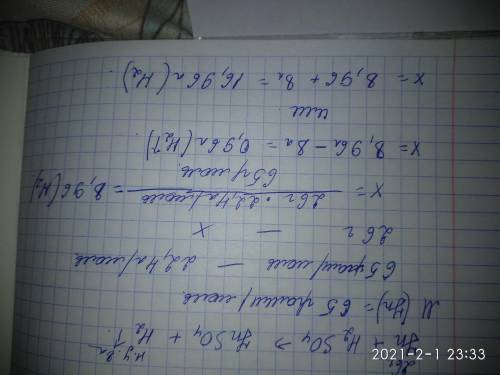 26г н.у. 8л
Zn + H2SO4 → ZnSO4 + H2↑
M (Zn) = 65 грамм/моль.
65 грамм/моль — 22,4 л/моль
26 г — x
x = 26 г · 22,4 л/моль / 65 г/моль = 8,96 (H2)
x = 8,96л - 8л = 0,96л (H2↑)
или
x = 8,96 + 8л = 16,96л (H2).
2021-2-1 23:33